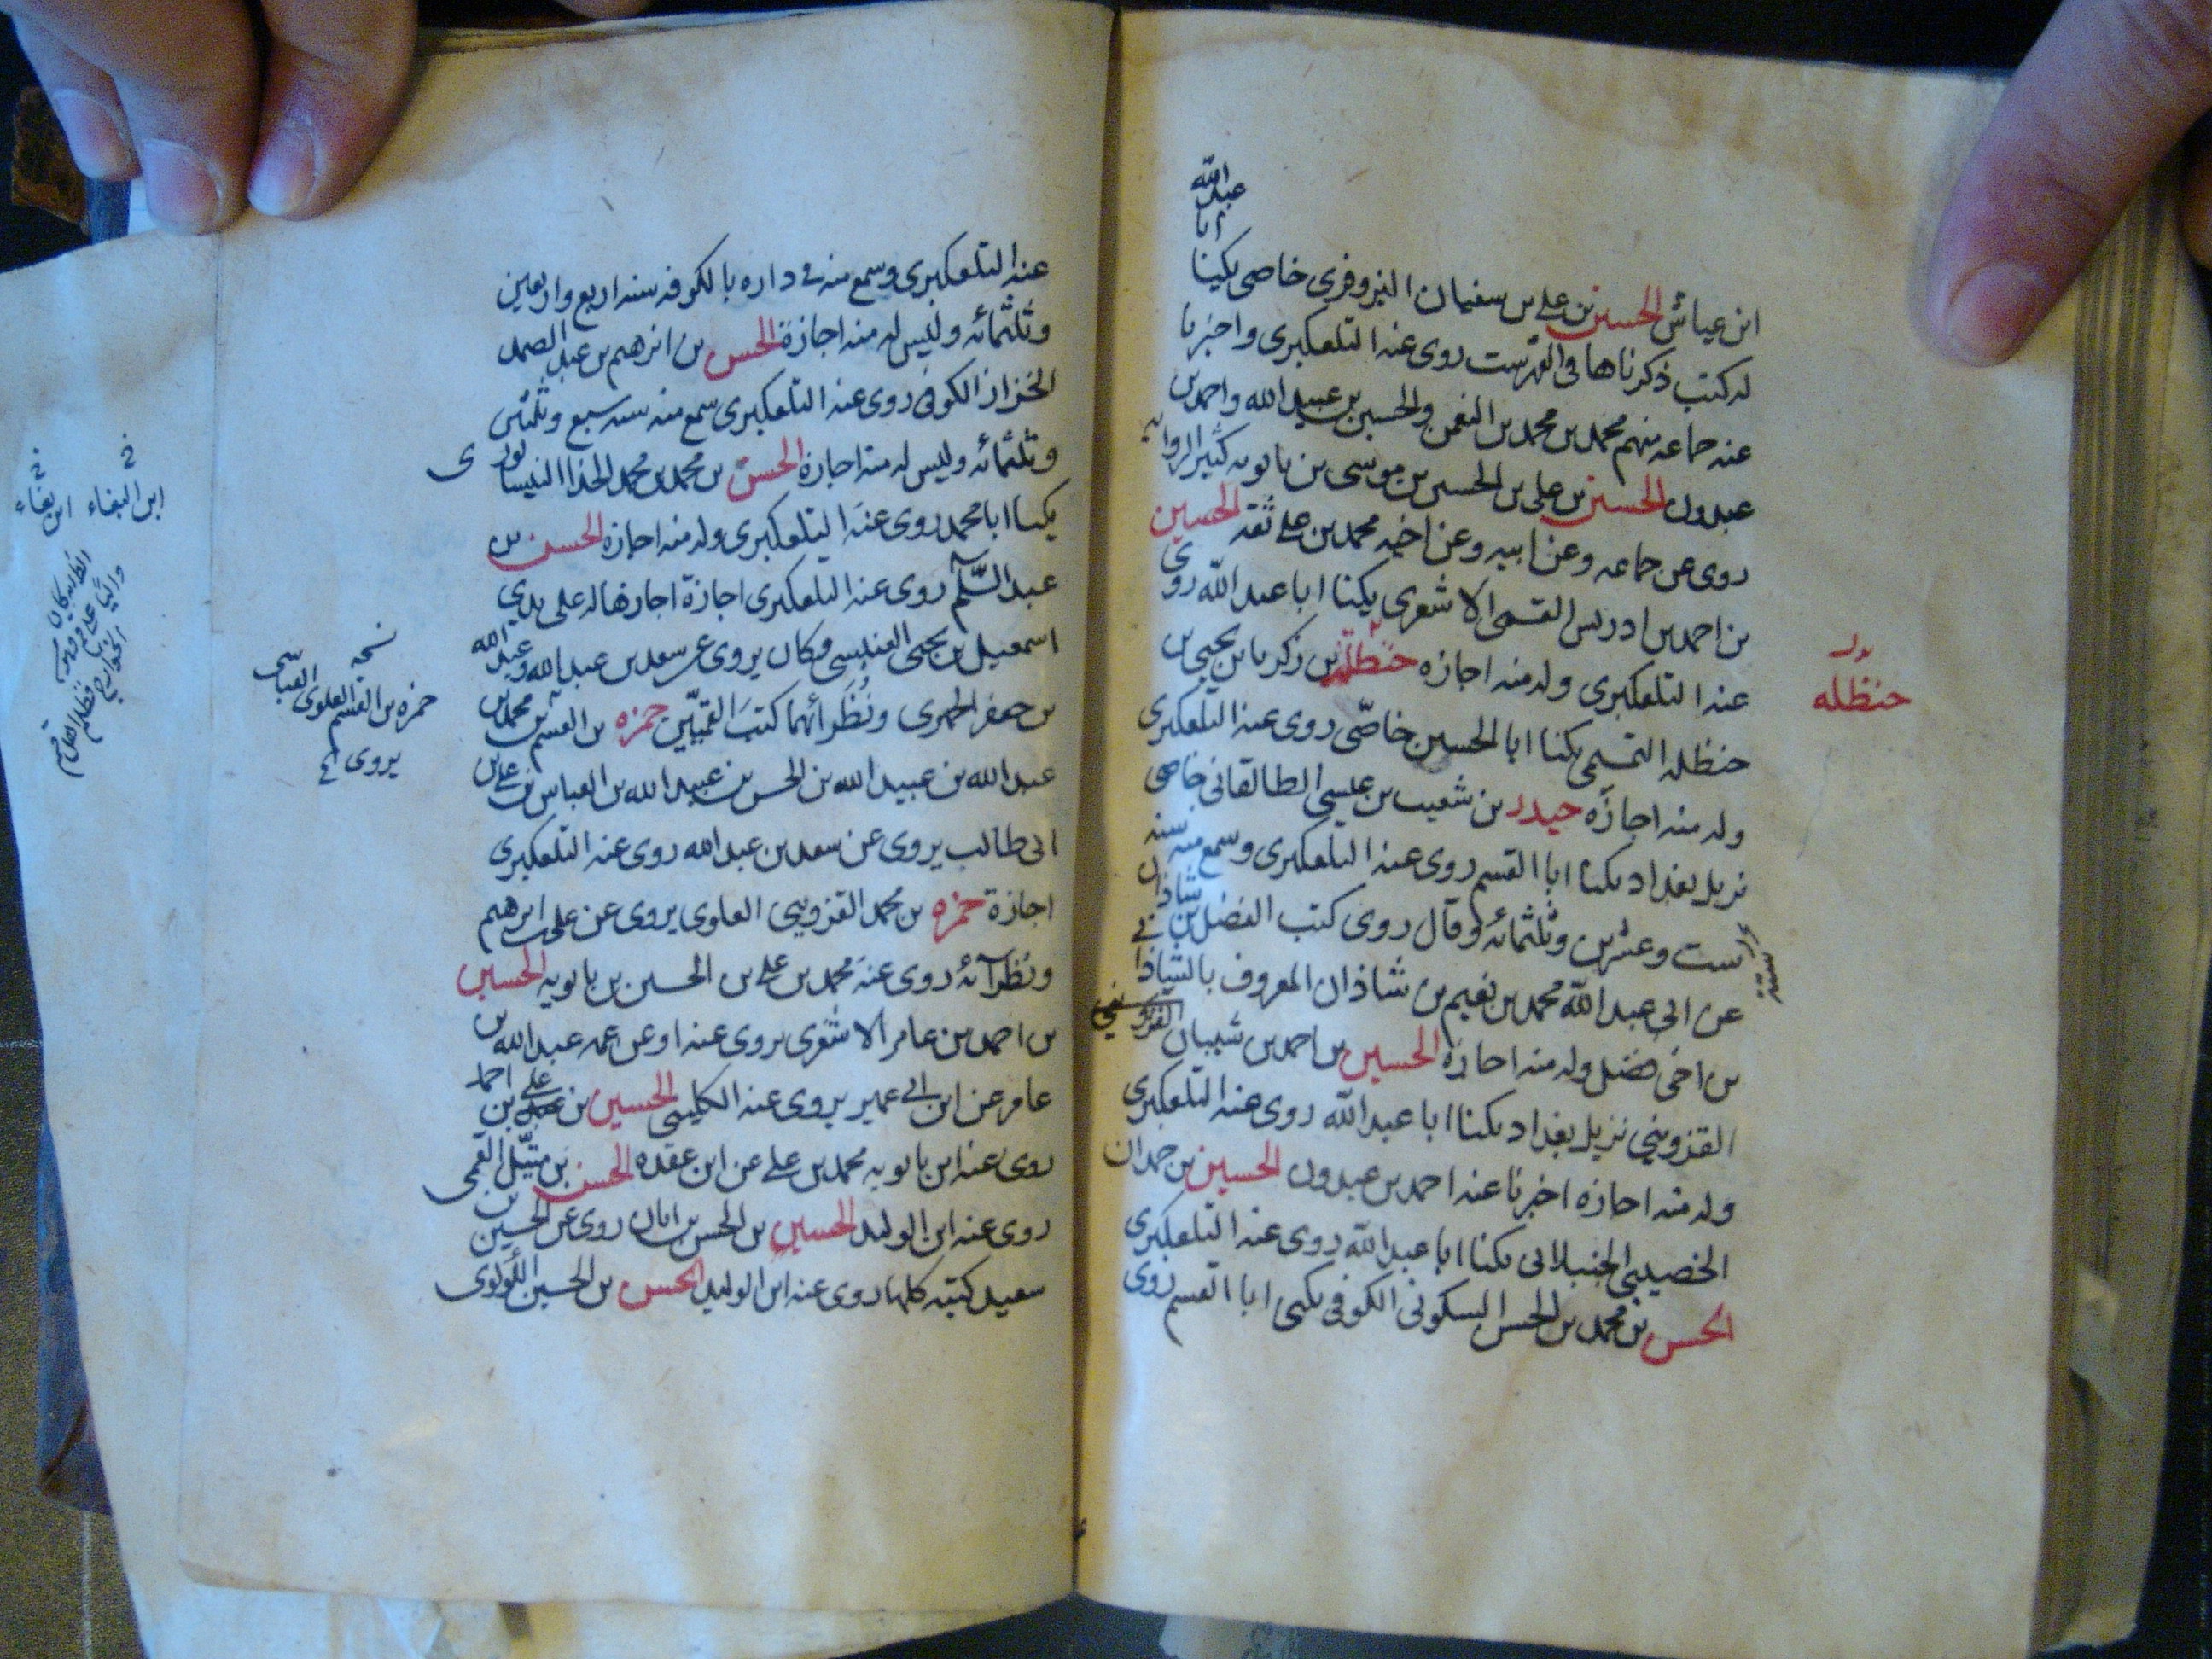 عبد الله
ابا
ابن عياش الحسين بن علي بن سفيان البزوفري خاصي يكنا
له كتب ذكرناها في الفهرست روى عنه التلعكبري واخبرنا
عنه جماعه منهم محمد بن محمد بن النعمن والحسين بن عبيد الله واحمد بن
عبدون الحسين بن علي بن الحسين بن موسى بن بابويه كثير الروايه
روى عن جماعه وعن ابيه وعن اخيه محمد بن علي ثقه الحسين
بن احمد بن ادريس القمي الاشعري يكنا ابا عبد الله روى
عنه التلعكبري وله منه اجازه حنظله بن زكريا بن يحيى بن
حنظله
حنظله التميمي يكنا ابا الحسين خاصّي روى عنه التلعكبري
وله منه اجازه حيدر بن شعيب بن عيسى الطالقاني خاصي
نزيل بغداد يكنا ابا القسم روى عنه التلعكبري وسمع منه سنه
ست وعشرين وثلثمائه وقال روى كتب الفضل بن شاذان
عن ابي عبد الله محمد بن نعيم بن شاذان المعروف بالشاذاني
بن اخي فضل وله منه اجازه الحسين بن احمد بن شيبان القزويني
القزويني نزيل بغداد يكنا ابا عبد الله روى عنه التلعكبري
وله منه اجازه اخبرنا عنه احمد بن عبدون الحسين بن حمدان
الخصيبي الجنبلاني يكنا ابا عبد الله روى عنه التلعكبري
الحسن بن محمد بن الحسن السكوني الكوفي يكنى ابا القسم روى
عنه التلعكبري وسمع منه في داره بالكوفه سنه اربع واربعين
وثلثمائه وليس له منه اجازة الحسن بن ابرهيم بن عبد الصمد
الخزاز الكوفي روى عنه التلعكبري سمع منه سنه سبع وثلثين
وثلثمائه وليس له منه اجازة الحسن بن محمد بن محمد الحذا النيسابوري
يكنا ابا محمد روى عنه التلعكبري وله منه اجازه الحسن بن
عبد السّلم روى عنه التلعكبري اجازة اجازها له على يدي
اسمعيل بن يحيى العبسي وكان يروي عن سعد بن عبد الله وعبد الله
بن جعفر الحميري ونُظَرائهما كتبَ القمّيّين حمزه بن القسم بن محمد بن
عبد الله بن عبيد الله بن الحسن بن عبيد الله بن العباس بن علي بن
ابي طالب يروي عن سعد بن عبد الله روى عنه التلعكبري
اجازة حمزه بن محمد القزويني العلوي يروي عن علي بن ابرهيم
ونُظرآئه روى عنه محمد بن علي بن الحسين بن بابويه الحسين
بن احمد بن عامر الاشعري يروي عنه او عن عمه عبد الله بن
عامر عن ابن ابي عمير يروي عنه الكليني الحسين بن علي بن احمد
روى عنه ابن بابويه محمد بن علي عن ابن عقده الحسن بن متّيل القمي
روى عنه ابن الوليد الحسين بن الحسن بن ابان روى عن الحسين بن
سعيد كتبه كلها روى عنه ابن الوليد الحسن بن الحسين اللؤلوي
نسخه
حمزه بن القسم العلوي العباسي
يروي
ابن البغاء ابن بغاء